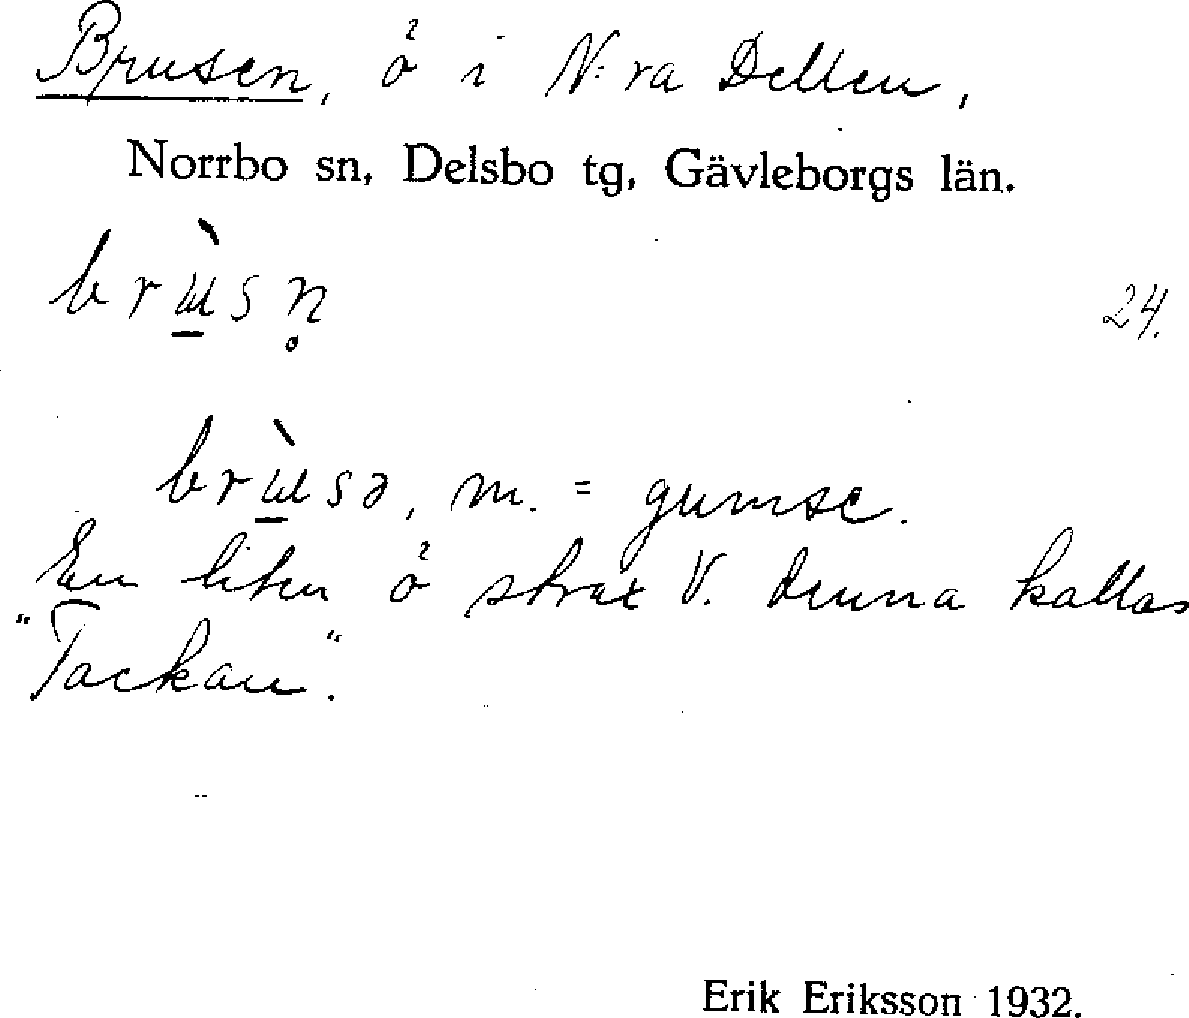 Brusen, ö i N:ra Dellen,
Norrbo sn, Delsbo tg, Gävleborgs län.
brùsn̥
24.
brùsə, m. = gumse.
En liten ö strax V. denna kallas
"Tackan".
Erik Eriksson 1932.